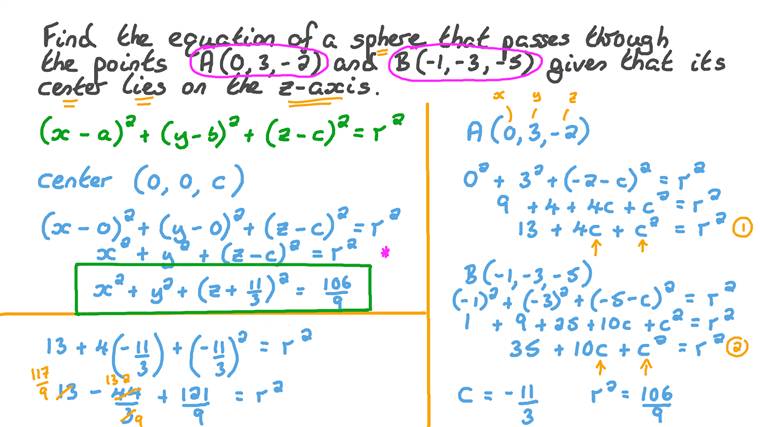 Find the equation of a sphere that passes through
the points A(0, 3, -2) and B(-1, -3, -5) given that its
center lies on the z-axis.
(x - a)² + (y - b)² + (z - c)² = r²
center (0, 0, c)
(x - 0)² + (y - 0)² + (z - c)² = r²
x² + y² + (z - c)² = r² *
x² + y² + (z + 11/3)² = 106/9
13 + 4(-11/3) + (-11/3)² = r²
117/9 13 - 132 44/3 9 + 121/9 = r²
x y z
A(0, 3, -2)
0² + 3² + (-2 - c)² = r²
9 + 4 + 4c + c² = r²
13 + 4c + c² = r² ①
B(-1, -3, -5)
(-1)² + (-3)² + (-5 - c)² = r²
1 + 9 + 25 + 10c + c² = r²
35 + 10c + c² = r² ②
c = -11/3 r² = 106/9